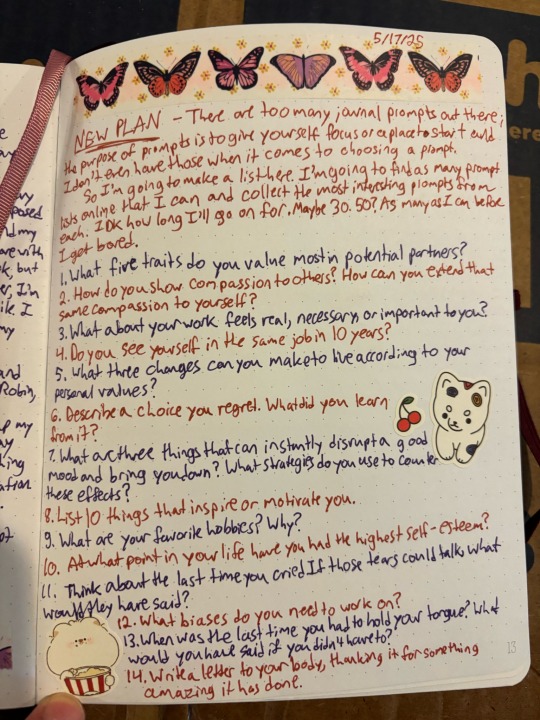 5/17/25
NEW PLAN - There are too many journal prompts out there;
the purpose of prompts is to give yourself focus or a place to start and
I don't even have those when it comes to choosing a prompt.
So I'm going to make a list here. I'm going to find as many prompt
lists online that I can and collect the most interesting prompts from
each. IDK how long I'll go on for. Maybe 30. 50? As many as I can before
I get bored.
1. What five traits do you value most in potential partners?
2. How do you show compassion to others? How can you extend that
same compassion to yourself?
3. What about your work feels real, necessary, or important to you?
4. Do you see yourself in the same job in 10 years?
5. What three changes can you make to live according to your
personal values?
6. Describe a choice you regret. What did you learn
from it?
7. What are three things that can instantly disrupt a good
mood and bring you down? What strategies do you use to counter
these effects?
8. List 10 things that inspire or motivate you.
9. What are your favorite hobbies? Why?
10. At what point in your life have you had the highest self-esteem?
11. Think about the last time you cried If those tears could talk, what
would they have said?
12. What biases do you need to work on?
13. When was the last time you had to hold your tongue? What
would you have said if you didn't have to?
14. Write a letter to your body, thanking it for something
amazing it has done.
13
my
and my
are with
k, but
er, I'm
my
and
Robin,
up my
king